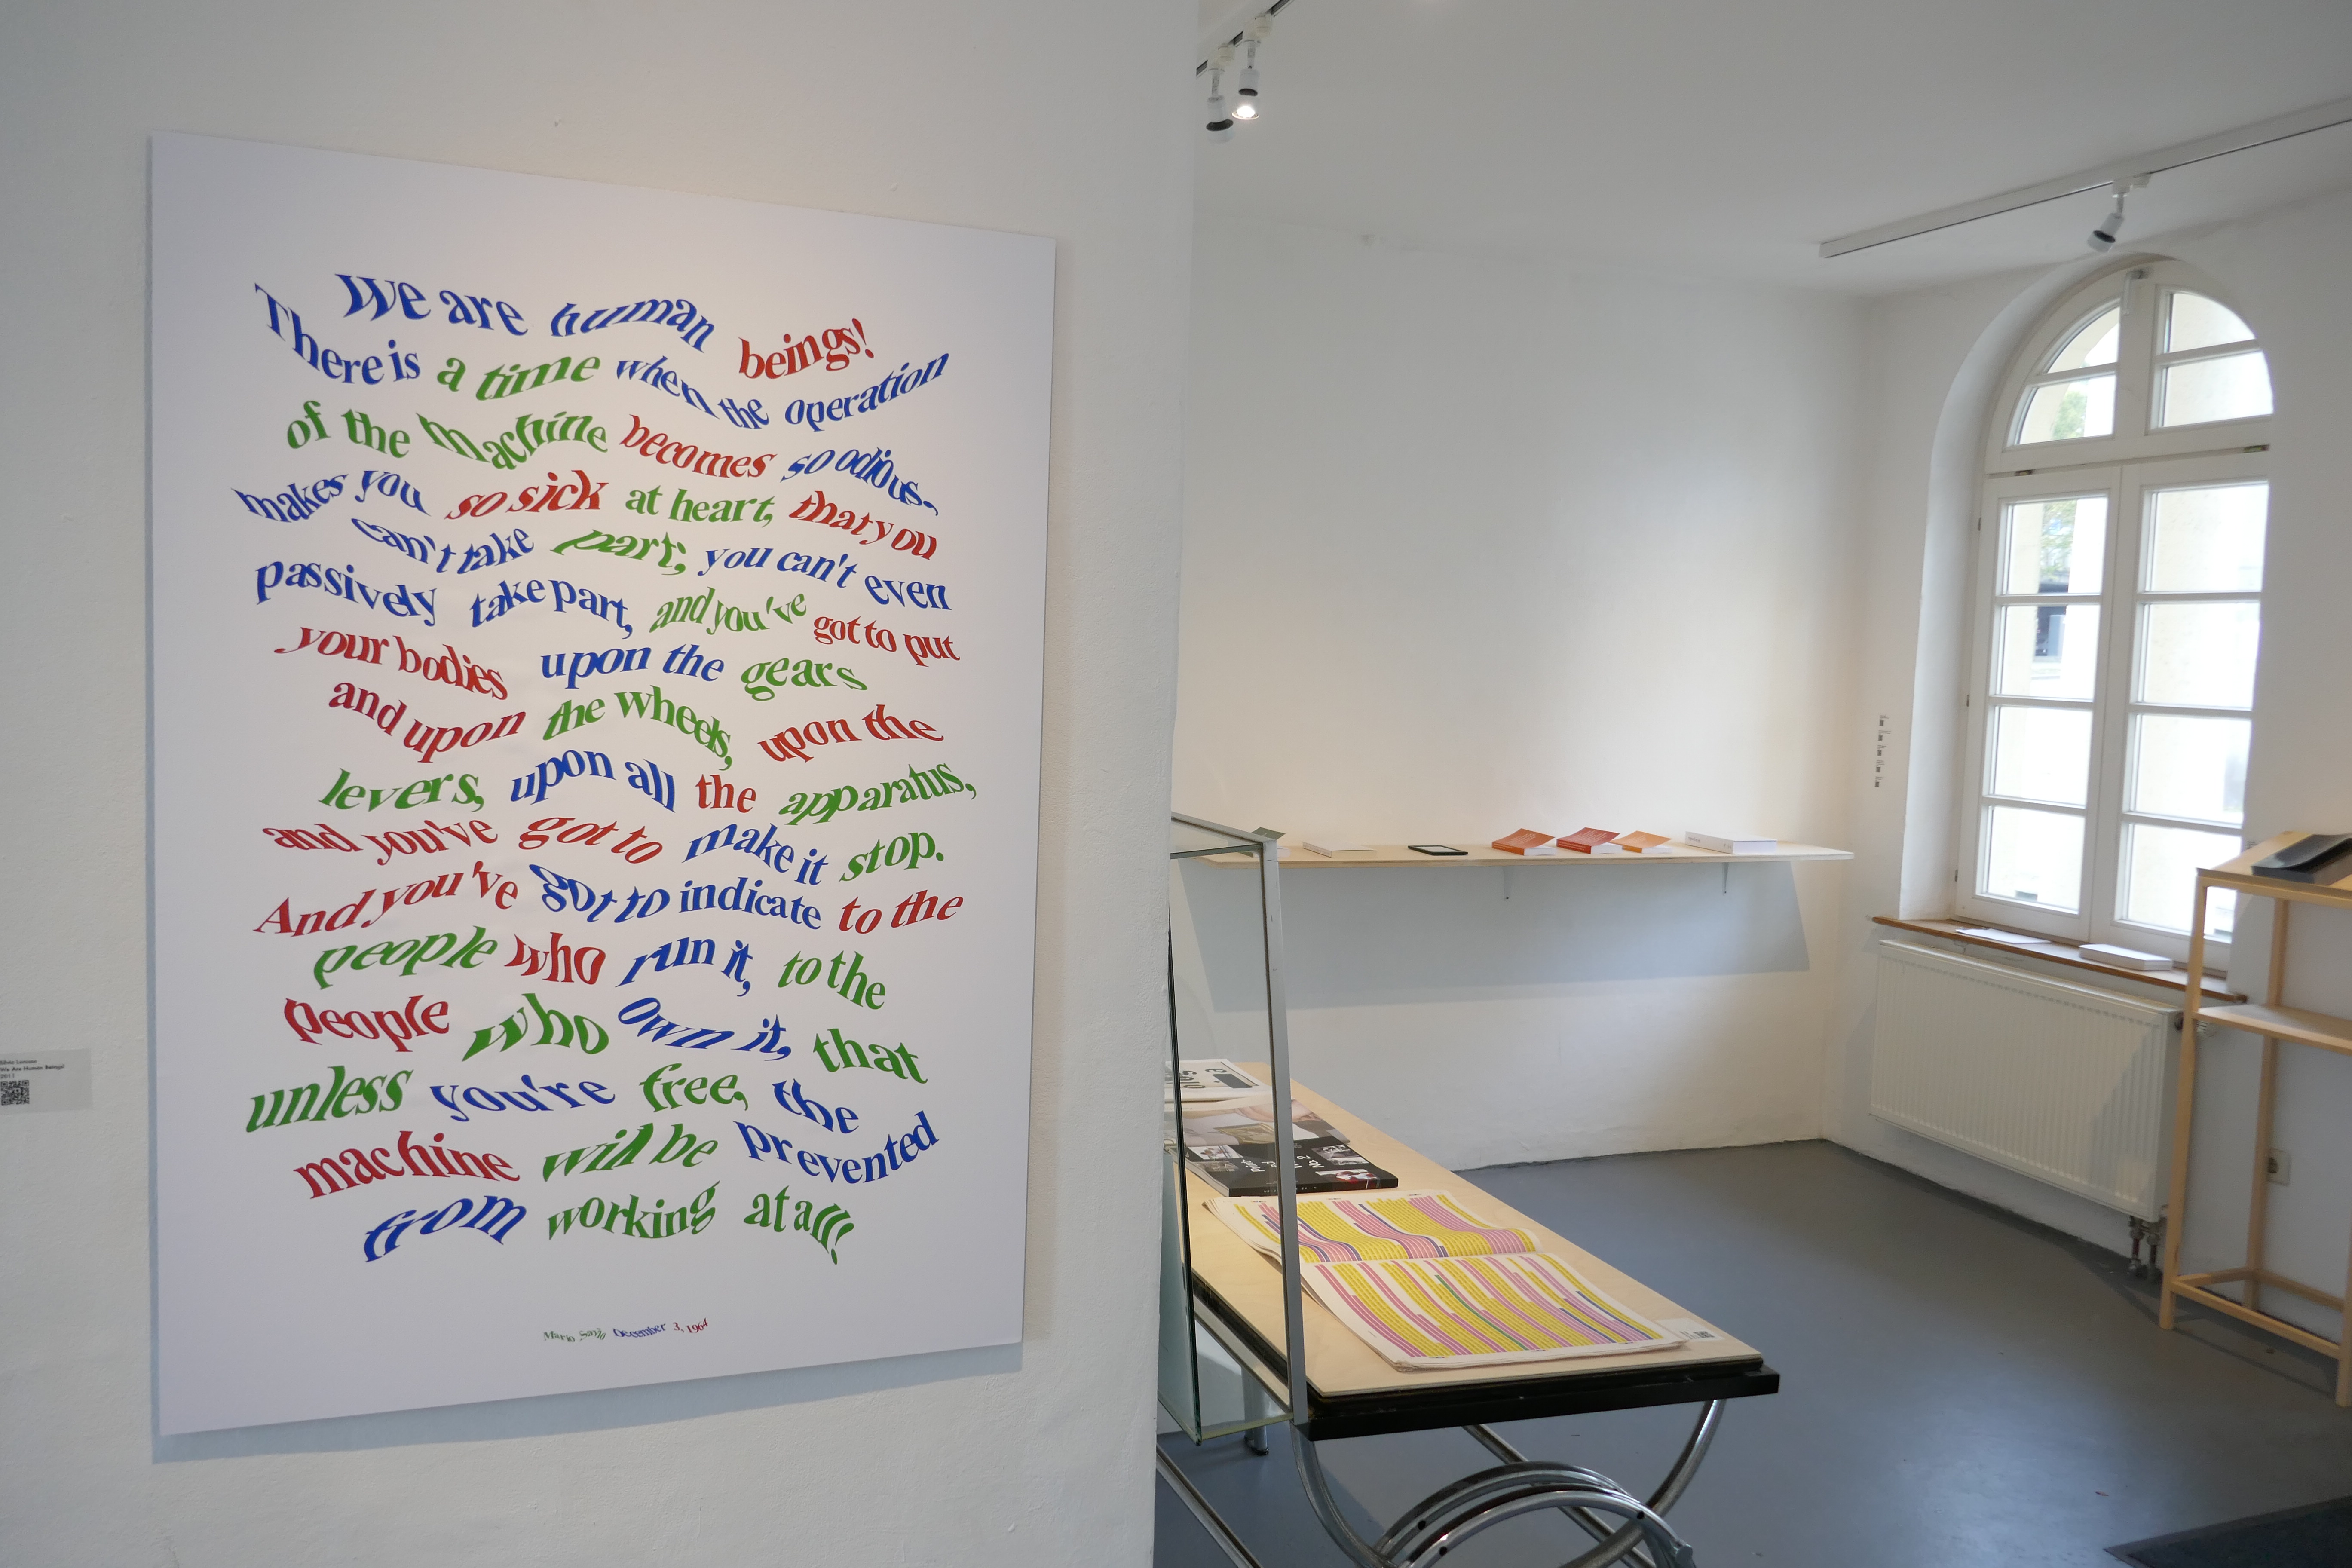 We are human beings!
There is a time when the operation
of the Machine becomes so odious,
makes you so sick at heart, that you
can't take part; you can't even
passively take part, and you've got to put
your bodies upon the gears
and upon the wheels, upon the
levers, upon all the apparatus,
and you've got to make it stop.
And you've got to indicate to the
people who run it, to the
people who own it, that
unless you're free, the
machine will be prevented
from working at all!
Mario Savio December 3, 1964
Silvio Lorusso
We Are Human Beings!
2011